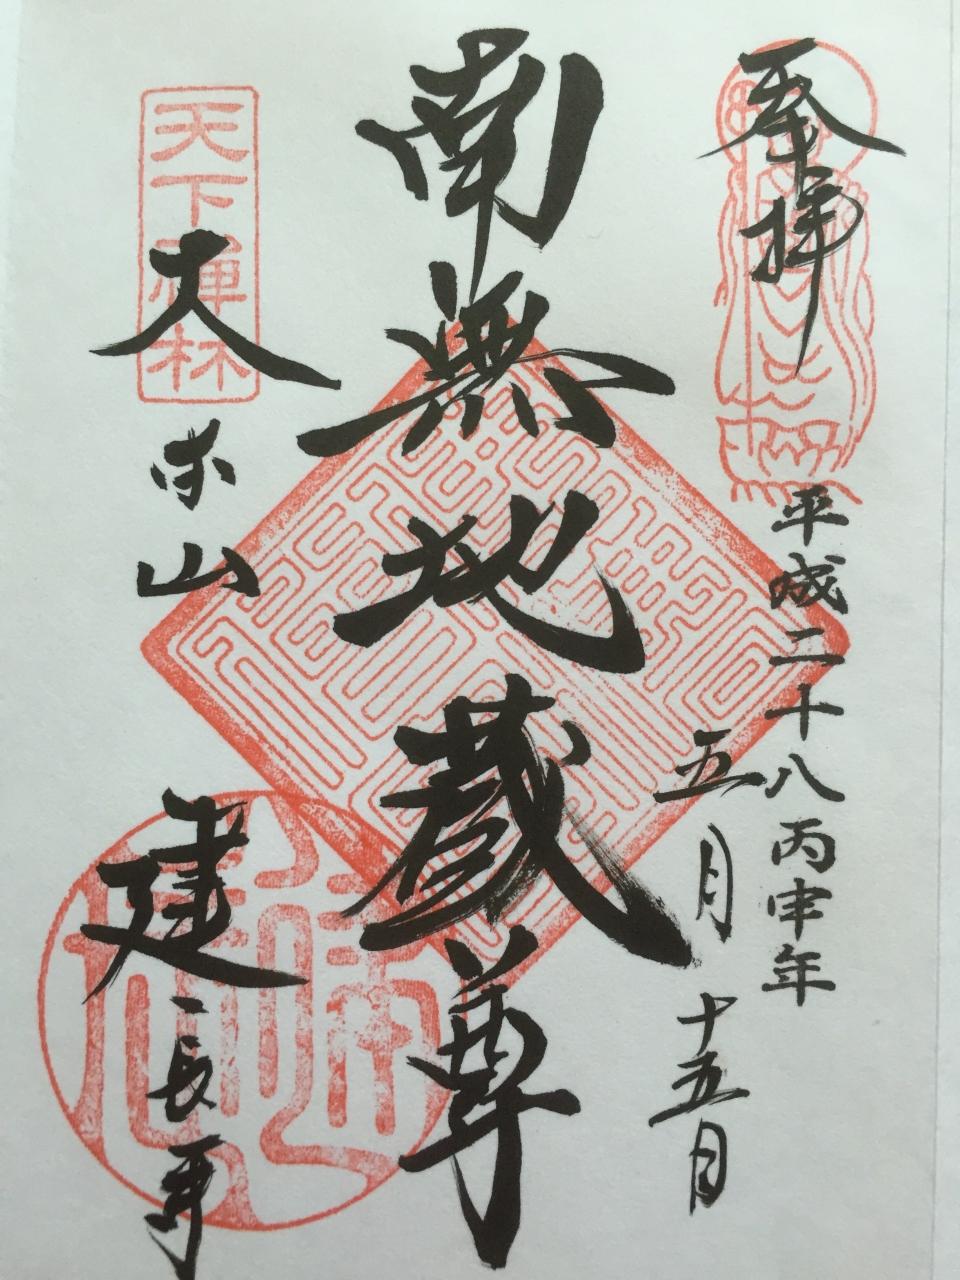 奉拝
平成二十八丙申年
五月十五日
南無地蔵尊
天下禅林
大本山
建長寺